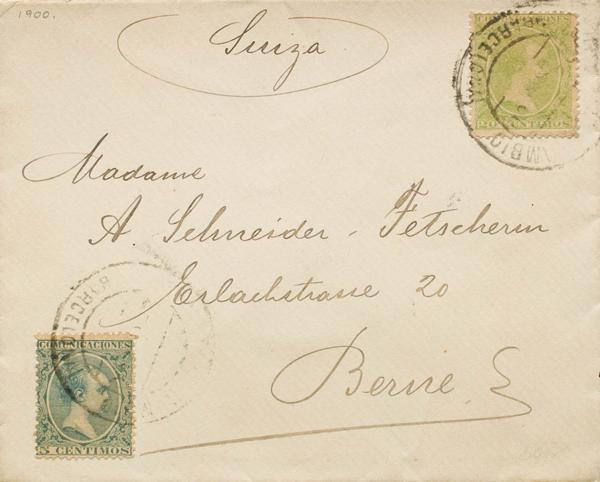 1900.
Suiza
COMUNICACIONES
20 CENTIMOS
BARCELONA
Madame
A. Schneider - Fetscherin
Erlachstrasse 20
Berne.
BARCELONA
COMUNICACIONES
5 CENTIMOS